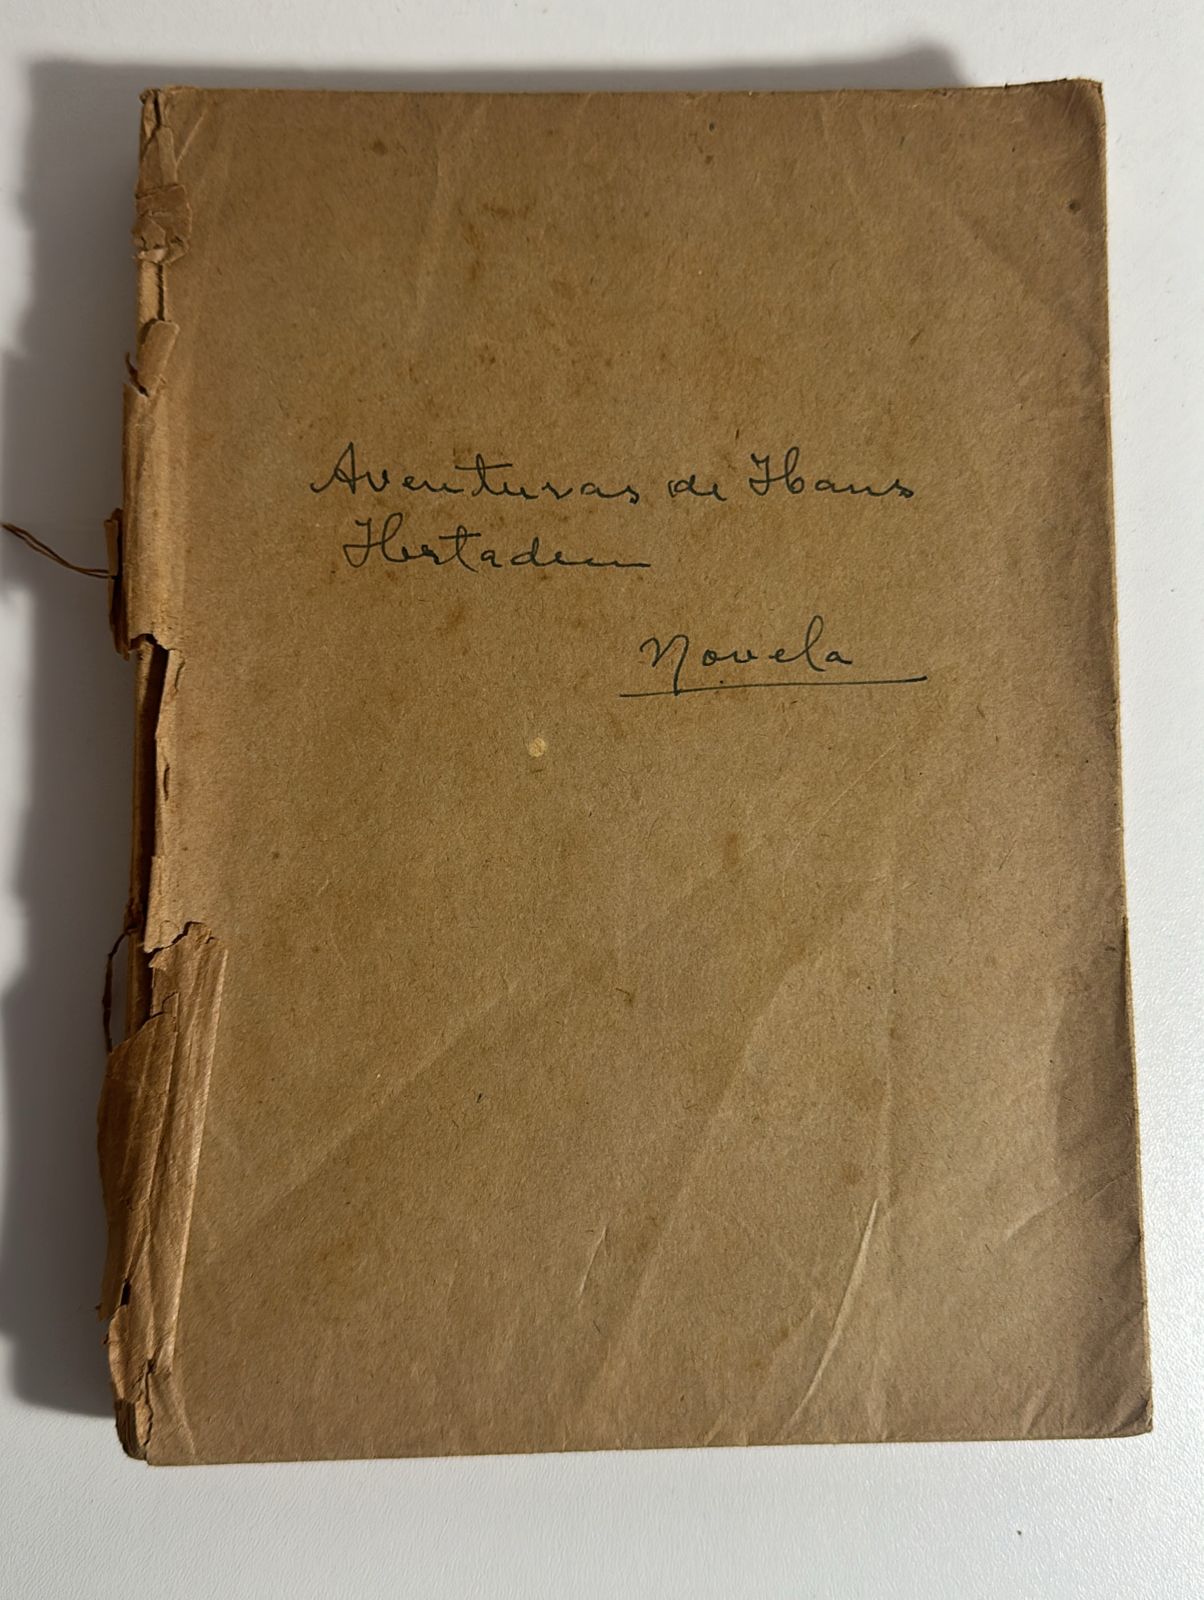 Aventuras de Hans
Hertadem
Novela